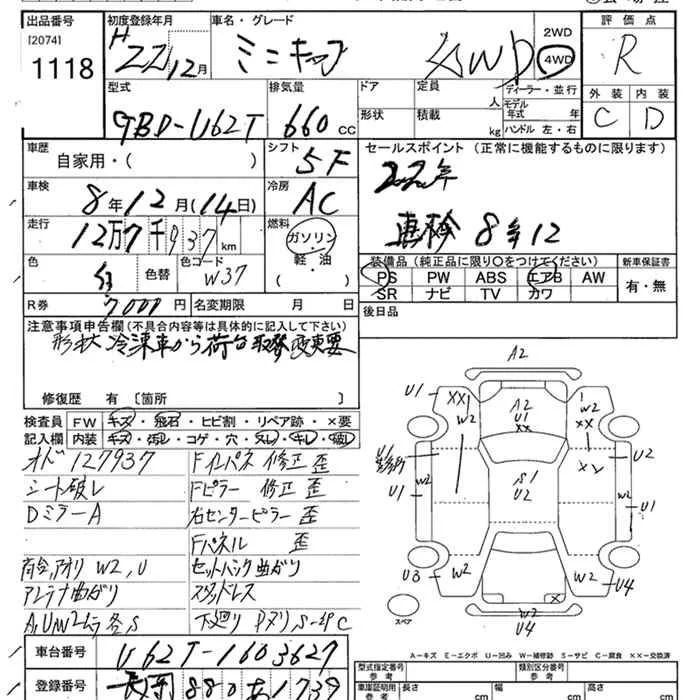 出品番号 初度登録年月 車名・グレード 2WD 4WD 評価点
[2074] H22 12月 ミニキャブ 4WD R
1118
型式 排気量 ドア 定員 ディーラー・並行 外装 内装
GBD-U62T 660 CC 形状 積載 人 kg モデル年式 年 ハンドル 左・右 C D
車歴 シフト セールスポイント (正常に機能するものに限ります)
自家用・( ) 5F 22年
車検 8年12月(14日) 冷房 AC
車検 8年12
走行 12万7千937km 燃料 ガソリン・軽・油
色 色替 色コード W37
装備品 (純正品に限り○をつけてください) 新車保証書
PS PW ABS エアB AW 有・無
SR ナビ TV カワ
R券 7000円 名変期限 月 日 後日品
注意事項申告欄(不具合内容等は具体的に記入して下さい)
形状 冷凍車から荷台取替 変更要
修復歴 有 〔箇所 〕
検査員 FW キズ・飛石・ヒビ割・リペア跡・×要
記入欄 内装 キズ・汚れ・コゲ・穴・スレ・キレ・破レ
オド 127937 Fインパネ 修正 歪
シート破レ Fピラー 修正 歪
DミラーA 右センターピラー 歪
Fパネル 歪
荷台,アオリ W2,U セットバック曲がり
アンテナ曲がり スタッドレス
A,U,W2ムラ各S 下廻り Pヌリ S-サビ C
A2
U1 XX W2 A2 U1 XX W2 XX
U1 W2 XX U2
U1 W2 S1 U2 W2 U1
U3 W2 W2 U4
スペア W2 U4
A-キズ E-エクボ U-凹み W-補修跡 S-サビ C-腐食 XX-交換済
車台番号 U62T-1603627
型式指定番号 参考 類別区分番号 参考
登録番号 長岡 880 あ 1739
車庫証明用 参考 長さ cm 幅 cm 高さ cm